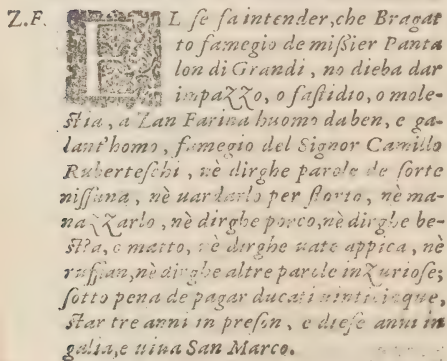 Z.F. EL se fa intender, che Bragat
to famegio de missier Panta
lon di Grandi, no dieba dar
impazzo, o fastidio, o mole-
stia, a Zan Farina huomo daben, e ga-
lant'homo, famegio del Signor Camillo
Ruberteschi, nè dirghe parole de sorte
nissuna, nè uardarlo per storto, nè ma-
nazzarlo, nè dirghe porco, nè dirghe be-
stia, o matto, nè dirghe uate appica, nè
ruffian, nè dirghe altre parole inzuriose;
sotto pena de pagar ducati uinticinque,
star tre anni in preson, e diese anni in
galia, e uiua San Marco.